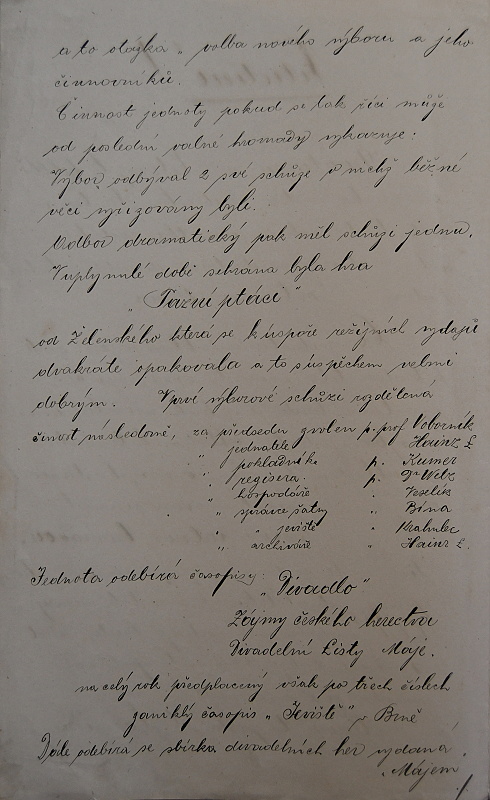 a to otázka „ volba nového výboru a jeho
činnovníků.
Činnost jednoty pokud se tak říci může
od poslední valné hromady vykazuje:
Výbor odbýval 2 své schůze v nichž běžné
věci vyřizovány byli.
Odbor dramatický pak měl schůzi jednu.
V uplynulé době sehrána byla hra
„Tažní ptáci"
od Želenského která se k úspoře režijních vydajů
dvakráte opakovala a to s úspěchem velmi
dobrým. V prvé výborové schůzi rozdělená
činost následovně, za předsedu zvolen p. prof Voborník
„ jednatele Hainz L
„ pokladníka p. Kumer
„ regisera. p. Dr Welz
„ hospodáře „ Veselík
„ správce šatny „ Bína
„ „ jeviště „ Krahulec
„ archiváře „ Hainz L.
Jednota odebírá časopisy: „Divadlo"
Zájmy českého herectva
Divadelní Listy Máje.
na celý rok předplacený však po třech číslech
zaniklý časopis „Jeviště" v Brně
Dále odebírá se sbírka divadelních her vydaná
„Májem"